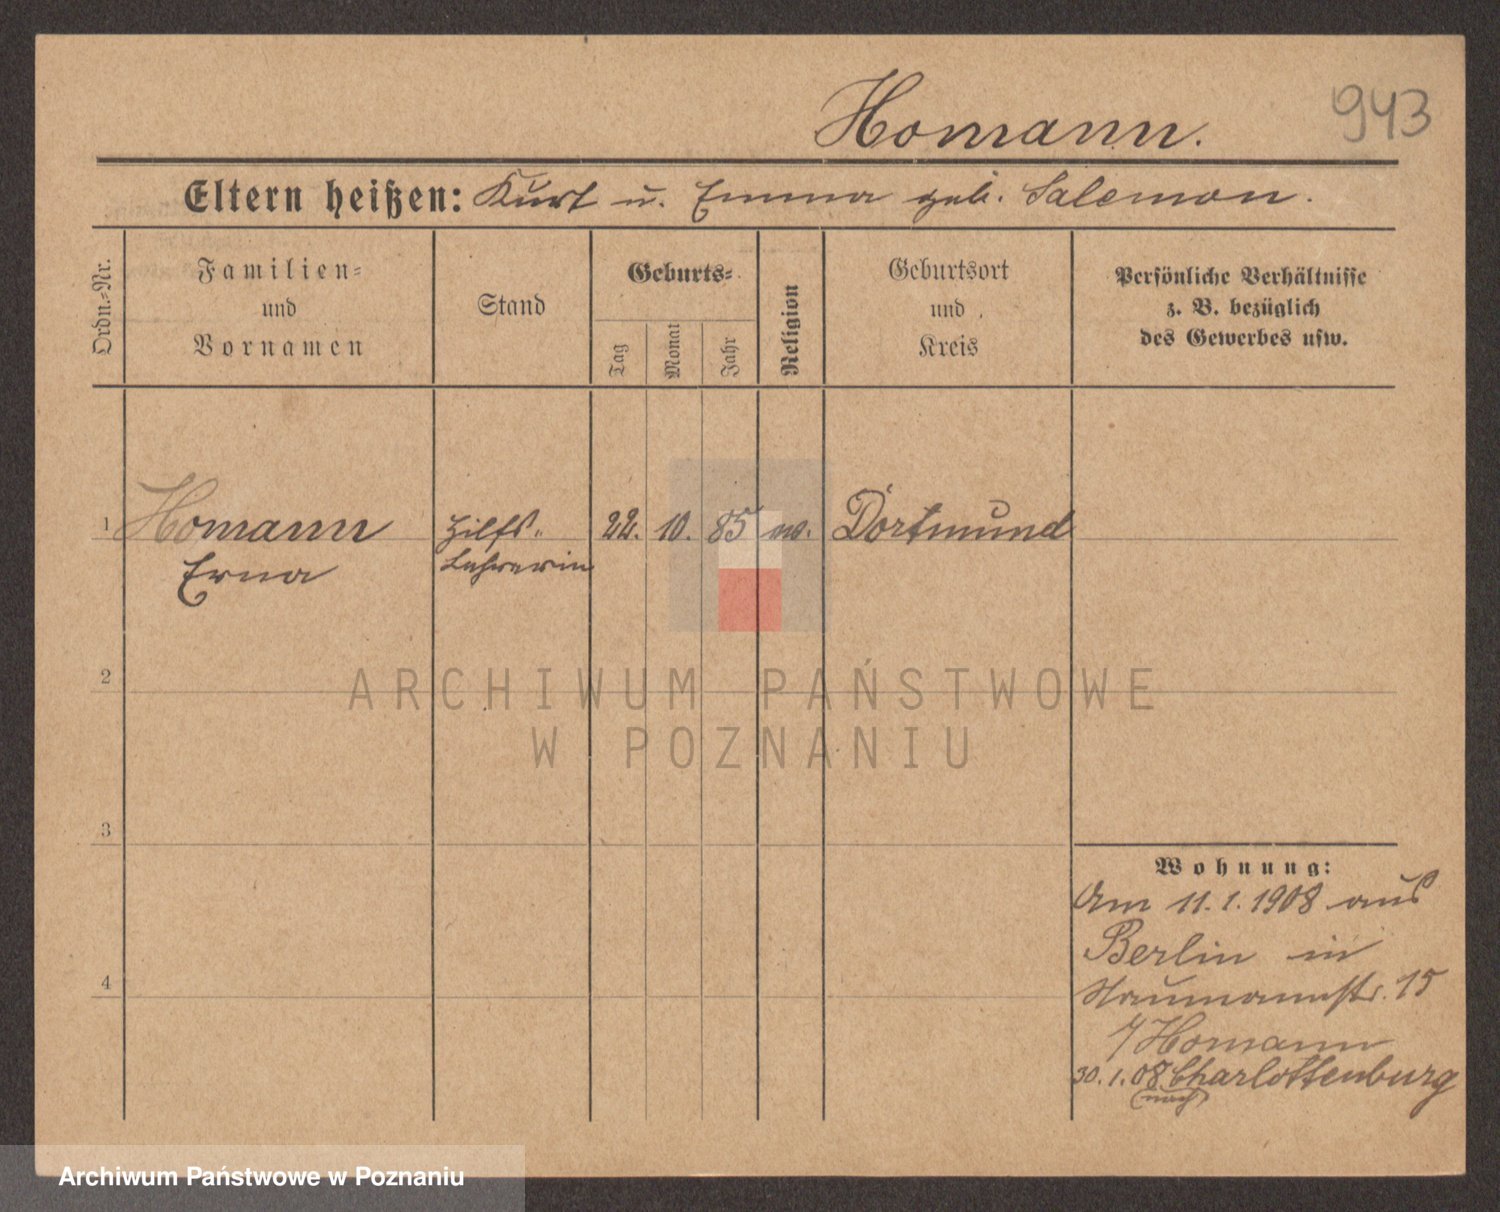 943
Homann.
Eltern heißen: Kurt u. Emma geb. Salemon.
Ordn.-Nr.
Familien-
und
Vornamen
Stand
Geburts-
Tag
Monat
Jahr
Religion
Geburtsort
und
Kreis
Persönliche Verhältnisse
z. B. bezüglich
des Gewerbes usw.
1 Homann Hilfs- 22. 10. 85 ev. Dortmund
Erna Lehrerin
2
ARCHIWUM PAŃSTWOWE
W POZNANIU
3
Wohnung:
Am 11.1.1908 aus
Berlin in
4
Naumannstr. 15
/Homann
30.1.08 Charlottenburg
(nach)
Archiwum Państwowe w Poznaniu